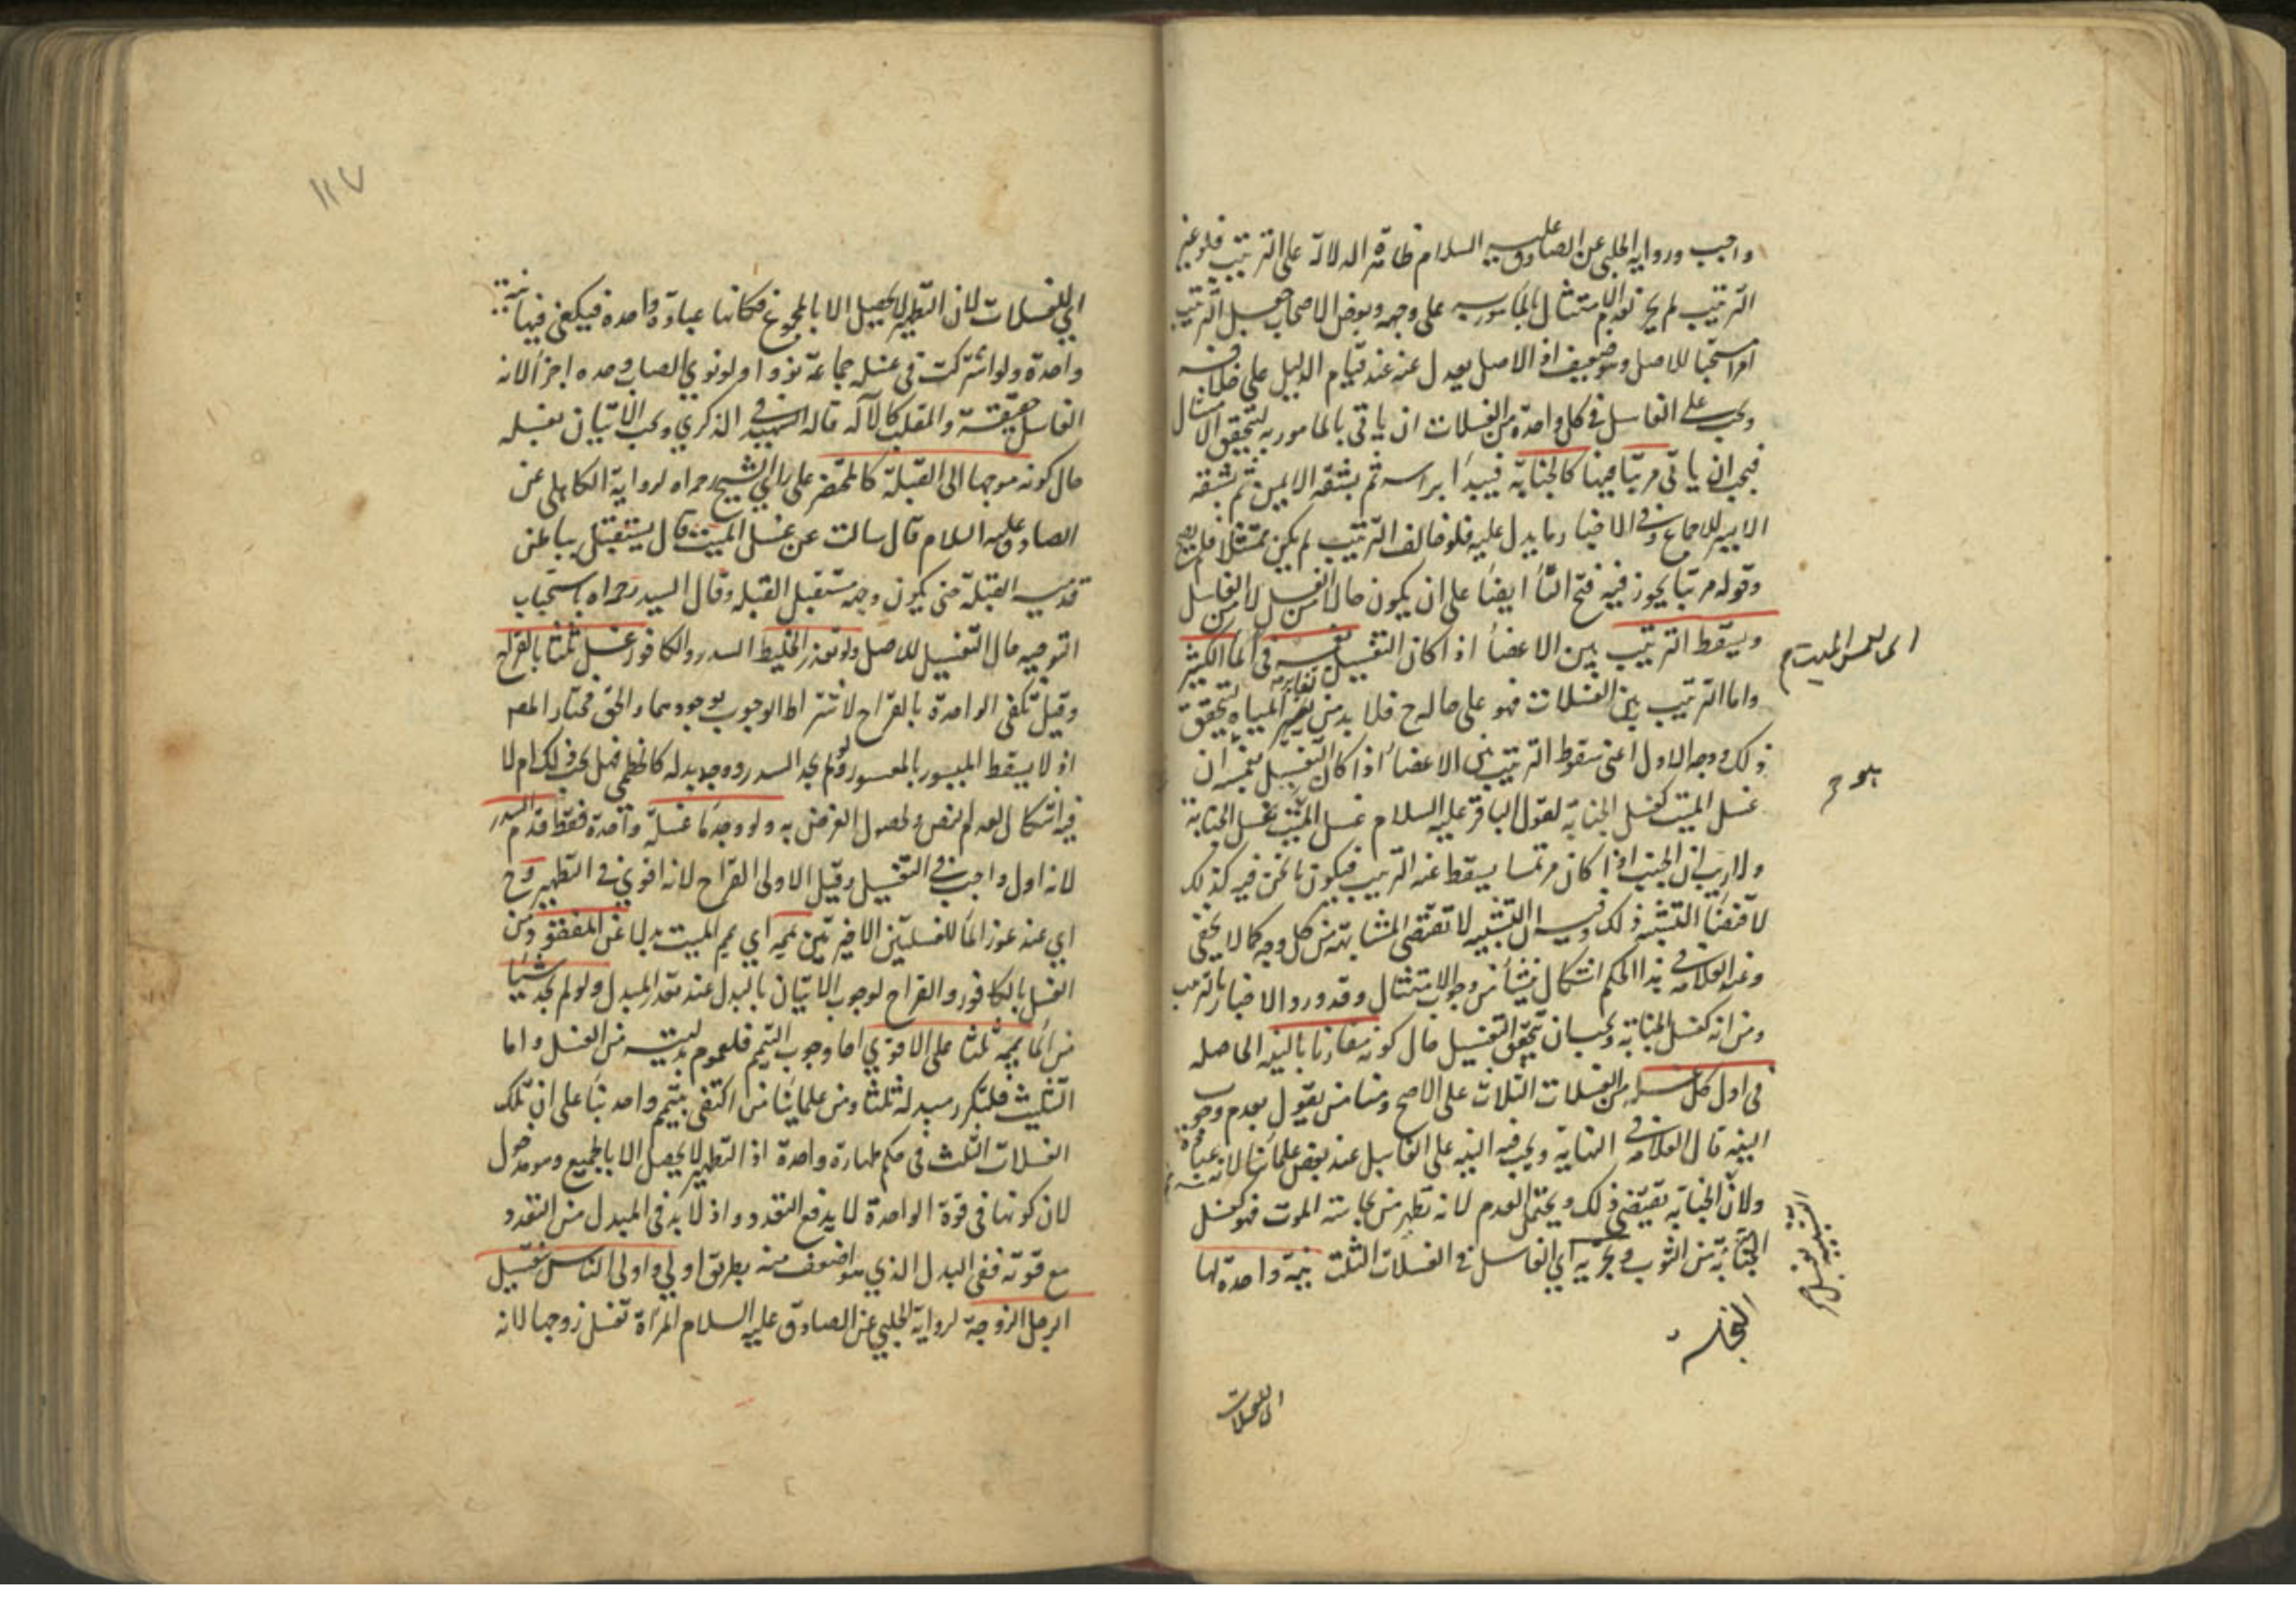 واجب ورواية الحلبي عن الصادق عليه السلام ظاهرة الدلالة على الترتيب فلو غير
الترتيب لم يجز لعدم الامتثال بالمامور به على وجهه وبعض الاصحاب جعل الترتيب
امرا مستحبا للاصل وهو ضعيف اذ الاصل يعدل عنه عند قيام الدليل على خلافه
ويجب على الغاسل في كل واحدة من الغسلات ان ياتي بالمامور به ليتحقق الامتثال
فيجب ان ياتي مرتبا فيها كالجنابة فيبدأ براسه ثم بشقه الايمن ثم بشقه
الايسر للاجماع وفي الاخبار ما يدل عليه فلو خالف الترتيب لم يكن ممتثلا فلم يصح
وقوله مرتبا يجوز فيه فتح التاء ايضا على ان يكون حالا من الغسل لا من الغاسل
ويسقط الترتيب بين الاعضاء اذا كان التغسيل بغمسه في الماء الكثير
واما الترتيب بين الغسلات فهو على حاله فلا بد من تغاير المياه ليتحقق
ذلك ووجه الاول اعني سقوط الترتيب بين الاعضاء اذا كان التغسيل بغمسه ان
غسل الميت كغسل الجنابة لقول الباقر عليه السلام غسل الميت كغسل الجنابة
ولا ريب ان الجنب اذا كان مرتمسا يسقط عنه الترتيب فيكون ما نحن فيه كذلك
لاقتضاء التشبيه ذلك وفيه ان التشبيه لا تقتضي المشابهة من كل وجه كما لا يخفى
وعند العلامة في هذا الحكم اشكال ينشأ من وجوب الامتثال وقد ورد الاخبار بالترتيب
ومن انه كغسل الجنابة ويجب ان يتحقق التغسيل حال كونه مقارنا بالنية الحاصلة
في اول كل من الغسلات الثلاث على الاصح ومنا من يقول بعدم وجوب
النية قال العلامة في النهاية ويجب فيه النية على الغاسل عند بعض علمائنا لانه عبادة
ولان الجنابة يقتضي ذلك ويحتمل العدم لانه تطهير من نجاسة الموت فهو كغسل
النجاسة من الثوب ويجزيه اي الغاسل في الغسلات الثلث نية واحدة لها
النجاسة
اي لغسل الميت
اي للغسلات
١١٧
اي للغسلات لان التطهير لا يحصل الا بالمجموع فكانها عبادة واحدة فيكفي فيها نية
واحدة ولو اشتركت في غسله جماعة نووا ولو نوى الصاب وحده اجزأ لانه
الغاسل حقيقة والمقلب كالآلة قاله الشهيد في الذكرى ويجب الاتيان بغسله
حال كونه موجها الى القبلة كالمحتضر على راي الشيخ رحمه الله لرواية الكاهلي عن
الصادق عليه السلام قال سالت عن غسل الميت قال يستقبل بباطن
قدميه القبلة حتى يكون وجهه مستقبل القبلة وقال السيد رحمه الله باستحباب
التوجيه حال التغسيل للاصل ولو تعذر الخليط السدر والكافور غسل ثلثا بالقراح
وقيل تكفي الواحدة بالقراح لاشتراط الوجوب بوجودهما والحق مختار المصـ
اذ لا يسقط الميسور بالمعسور ولو لم يجد السدر ووجد بدله كالخطمي فهل يجب ذلك ام لا
فيه اشكال لعدم النص ولحصول الغرض به ولو وجد ماء غسلة واحدة فقط قدم السدر
لانه اول واجب في التغسيل وقيل الاولى القراح لانه اقوى في التطهير وح
اي عند عوز الماء للغسلتين الاخيرتين يممه اي يمم الميت بدلا عن المفقود من
الغسل بالكافور والقراح لوجوب الاتيان بالبدل عند تعذر المبدل ولو لم يجد شيئا
من الماء يممه ثلثا على الاقوى اما وجوب التيمم فلعموم بدليته من الغسل واما
التثليث فلتكرر مبدله ثلثا ومن علمائنا من اكتفى بتيمم واحد بناء على ان تلك
الغسلات الثلث في حكم طهارة واحدة اذ التطهير لا يحصل الا بالجميع وهو مدخول
لان كونها في قوة الواحدة لا يدفع التعدد واذ لا بد في المبدل من التعدد
مع قوته ففي البدل الذي هو اضعف منه بطريق اولى واولى الناس بتغسيل
الرجل الزوجة لرواية الحلبي عن الصادق عليه السلام المرأة تغسل زوجها لانه